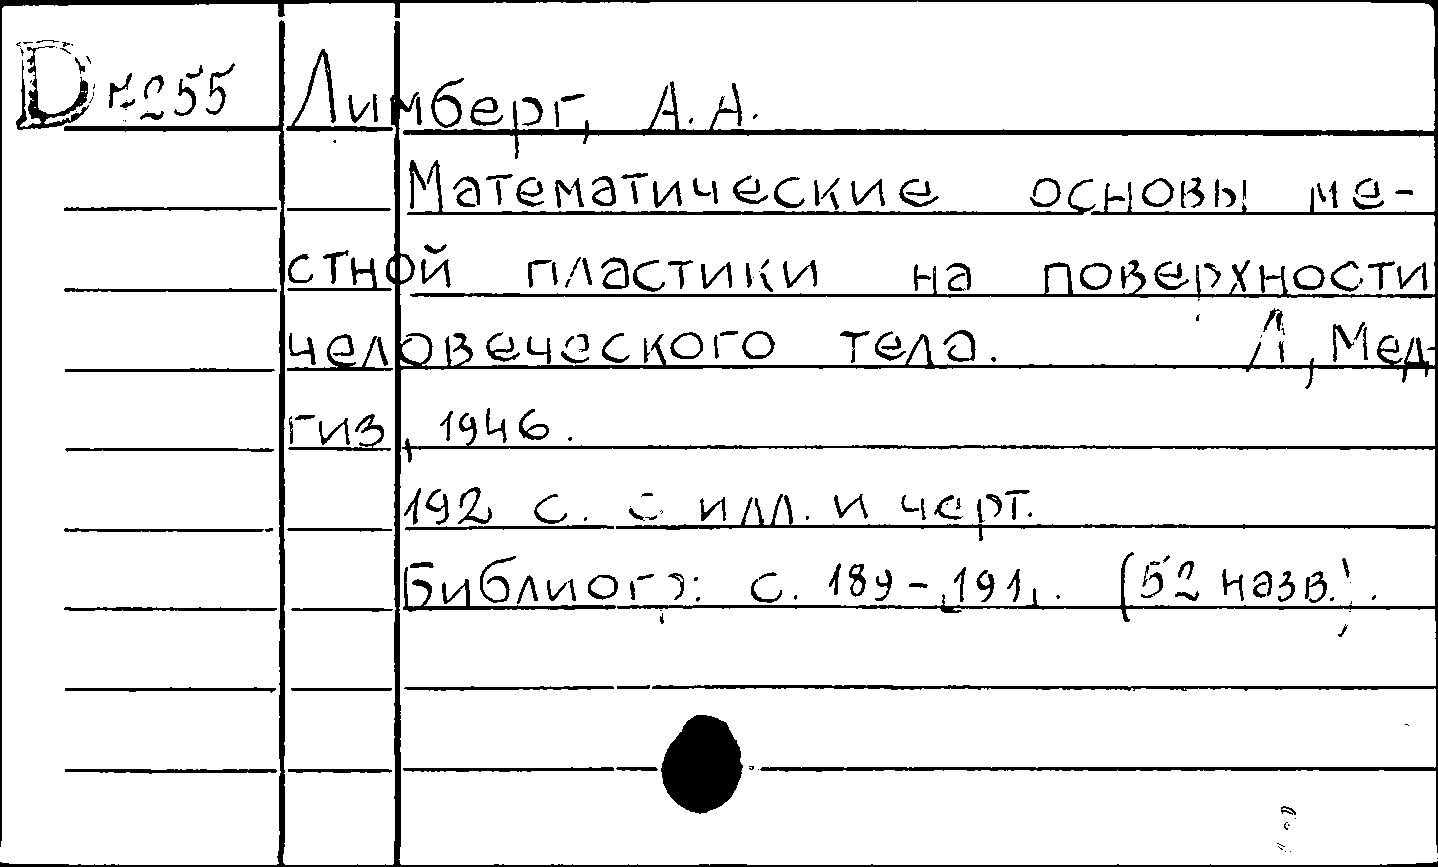 D 7255 Лимберг, А.А.
Математические основы ме-
стной пластики на поверхности
человеческого тела. Л, Мед-
гиз, 1946.
192 с. с илл. и черт.
Библиогр: с. 189-191. (52 назв.).